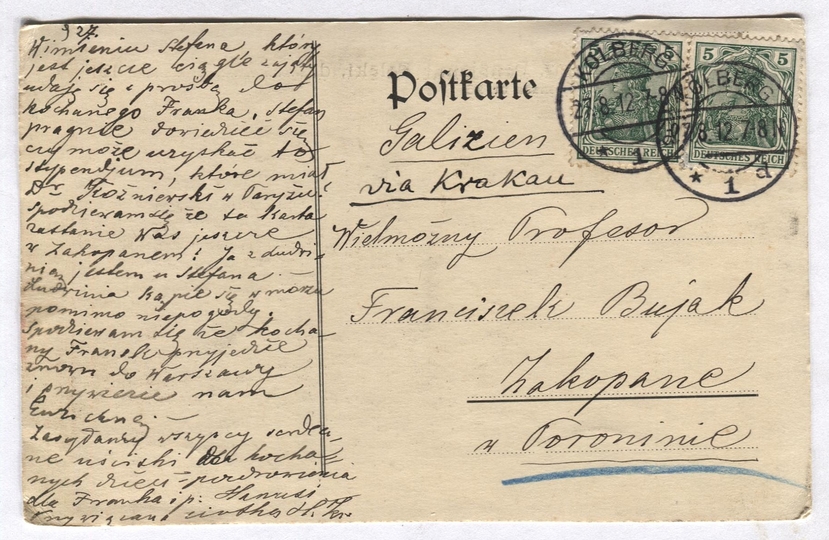 927.
W imieniu Stefana, który
jest jeszcze ciągle zajęty
udaję się z prośbą do
kochanego Franka, Stefan
pragnie dowiedzieć się
czy może uzyskać to
stypendjum, które miał
Dr Koźniewski w Paryżu?
Spodziewam się że ta kartа
zastanie Was jeszcze
w Zakopanem! Ja z Ludwi-
nią jestem u Stefana. –
Ludwinia kąpie się w morzu
pomimo niepogody.
Spodziewam się że kocha-
ny Franek przyjedzie
znowu do Warszawy
i przywiezie nam
Zasyłamy wszyscy serdecz-
ne uściski dla kocha-
nych dzieci pozdrowienia
dla Franka i p. Hanusi
Przywiązana ciotka
Postkarte
Galizien
via Krakau
Wielmożny Profesor
Franciszek Bujak
Zakopane
w Poroninie
KOLBERG
27.8.12.7-8N.
* 1 d
KOLBERG
27.8.12.7-8N.
* 1 d
5 5
DEUTSCHES REICH
DEUTSCHES REICH